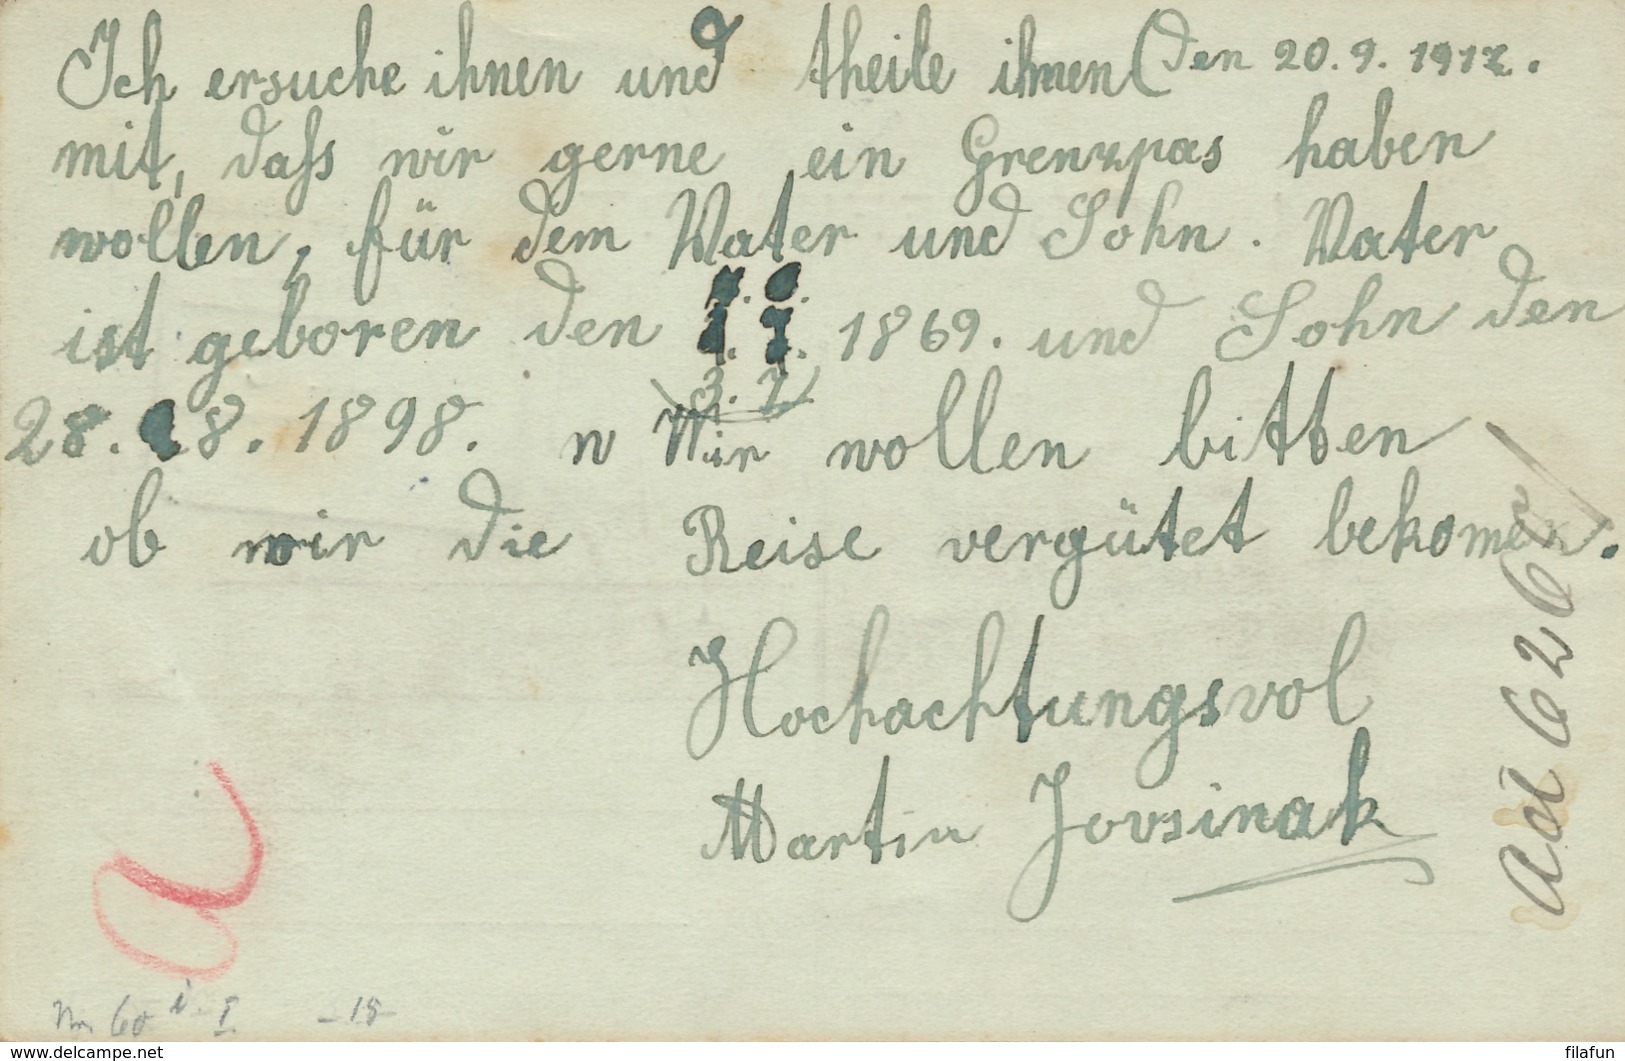 Ich ersuche ihnen und theile ihnen (den 20.9.1917.
mit, daſs wir gerne ein Grenzpas haben
wollen, für dem Vater und Sohn. Vater
ist geboren den 1869. und Sohn den
28. 8. 1898. Wir wollen bitten
ob wir die Reise vergütet bekomen.
Hochachtungsvol
Martin Jovsinak
ad 6267
a
60 i. I -18-
www.delcampe.net
filafun